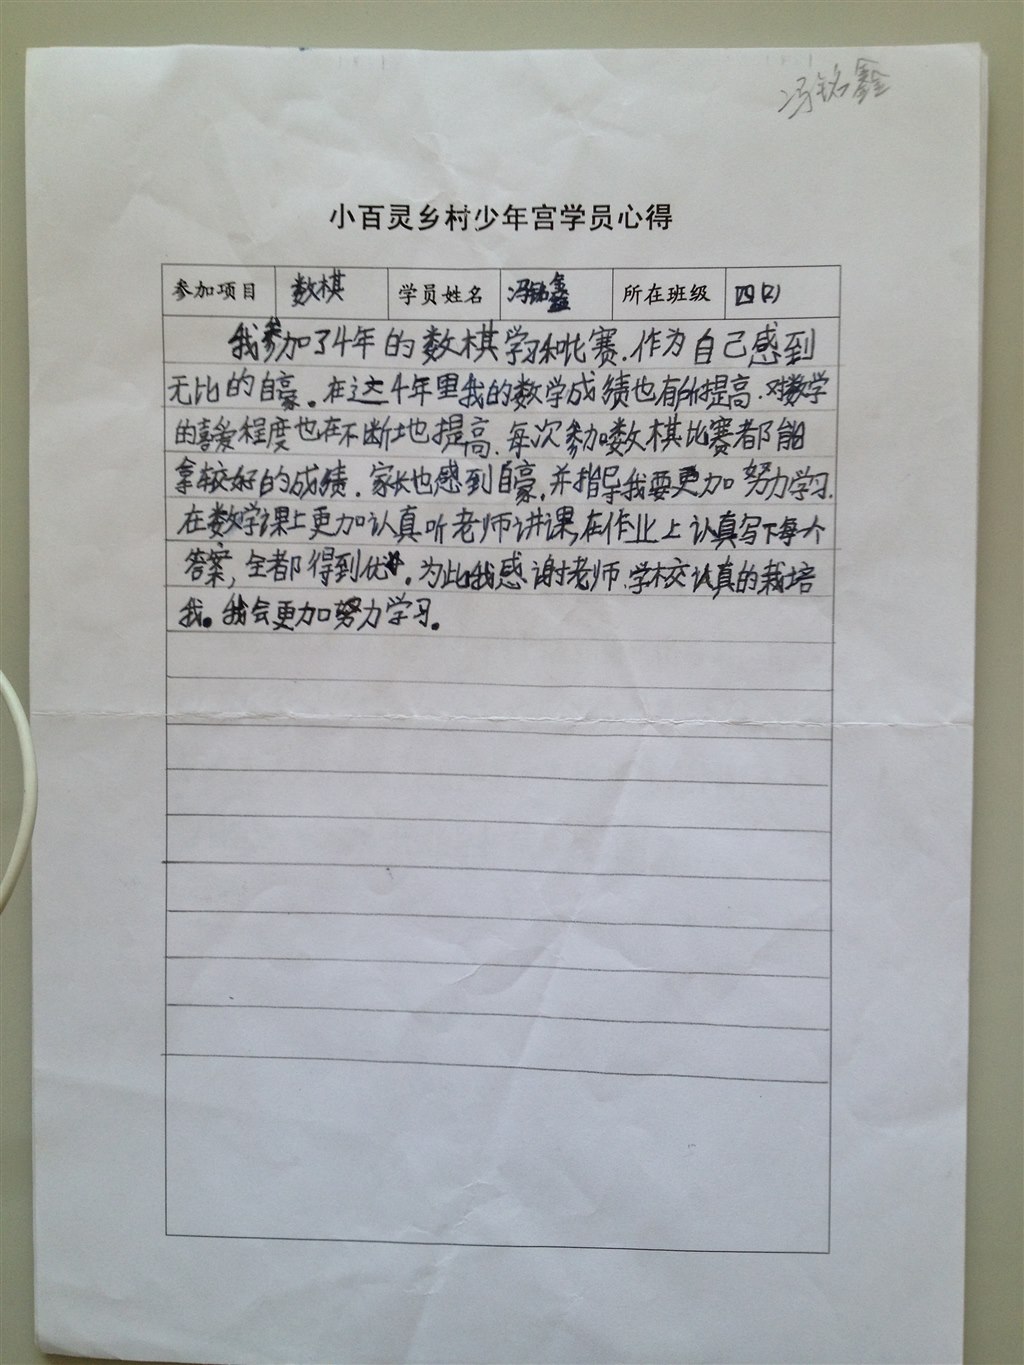 冯铭鑫
小百灵乡村少年宫学员心得
参加项目 数棋 学员姓名 冯铭鑫 所在班级 四(2)
我参加了4年的数棋学习和比赛.作为自己感到
无比的自豪。在这4年里我的数学成绩也有所提高.对数学
的喜爱程度也在不断地提高.每次参加数棋比赛都能
拿较好的成绩.家长也感到自豪,并指导我要更加努力学习.
在数学课上更加认真听老师讲课,在作业上认真写下每个
答案,全都得到优.为此我感谢老师.学校认真的栽培
我。我会更加努力学习。